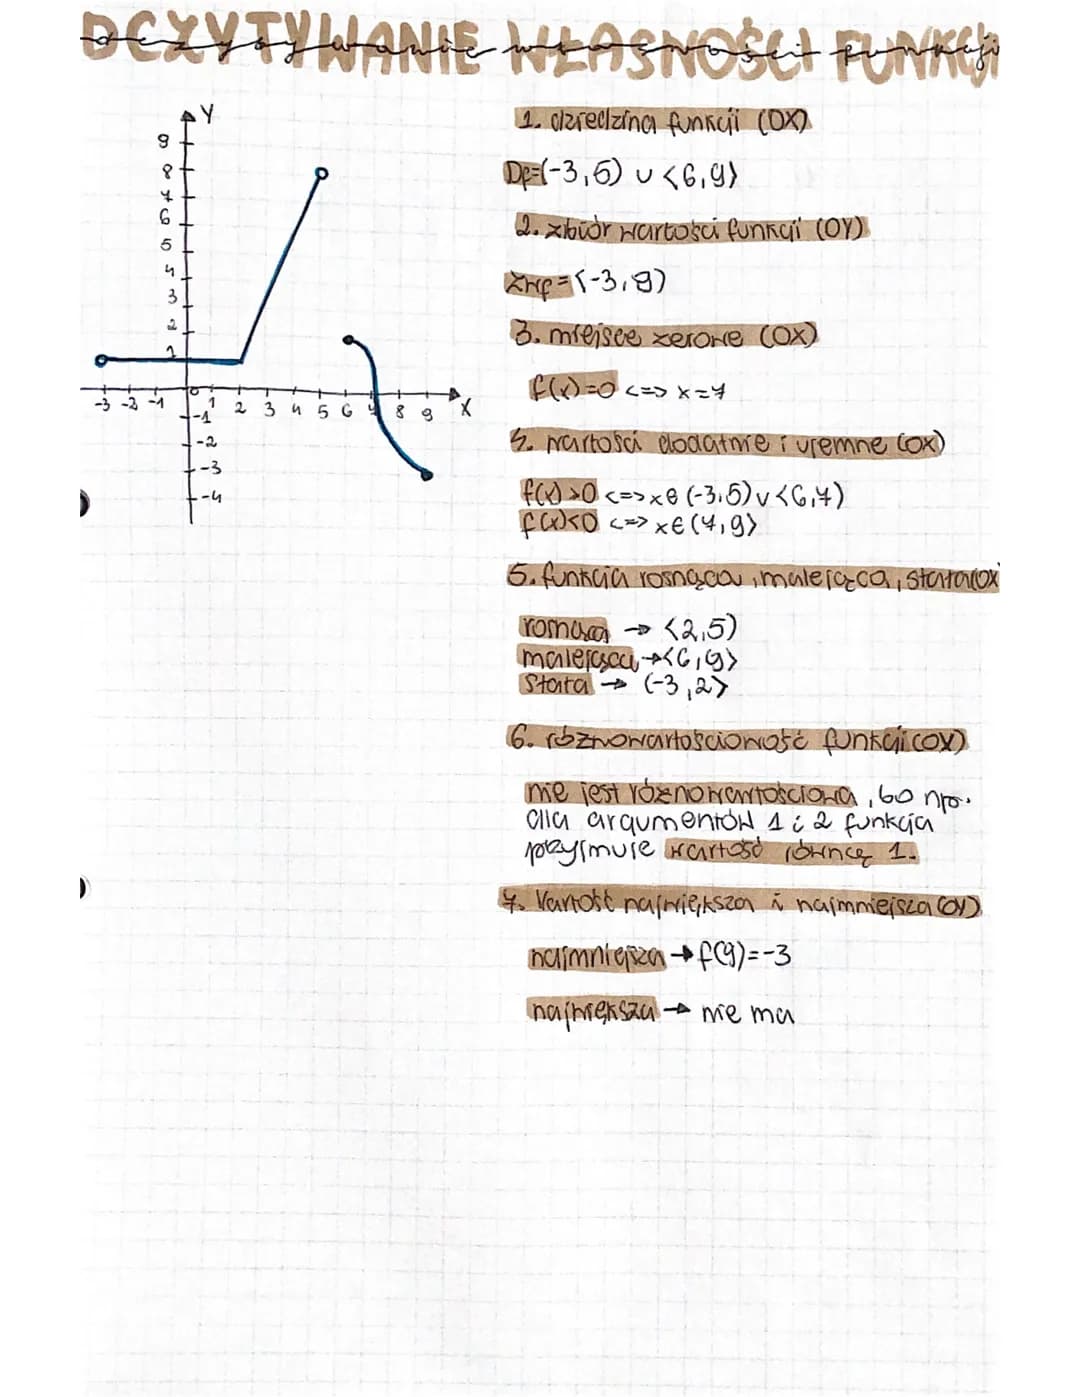 ODCZYTYWANIE WŁASNOŚCI FUNKCJI
odczytywanie własności funkcji
Y
9
8
7
6
5
4
3
2
1
-3 -2 -1 0 1 2 3 4 5 6 7 8 9 X
-1
-2
-3
-4
1. dziedzina funkcji (OX)
Df=(-3,5) ∪ <6,9>
2. zbiór wartości funkcji (OY)
ZWf=<-3,8)
3. miejsce zerowe (OX)
f(x)=0 <=> x=7
4. wartości dodatnie i ujemne (OX)
f(x)>0 <=> x∈(-3,5)∪<6,7)
f(x)<0 <=> x∈(7,9>
5. funkcja rosnąca, malejąca, stała(OX
rosnąca → <2,5)
malejąca → <6,9>
stała → (-3,2>
6. różnowartościowość funkcji (OX)
nie jest różnowartościowa, bo np.
dla argumentów 1 i 2 funkcja
przyjmuje wartość równą 1.
7. Wartość największa i najmniejsza (OY)
najmniejsza → f(9)=-3
największa → nie ma